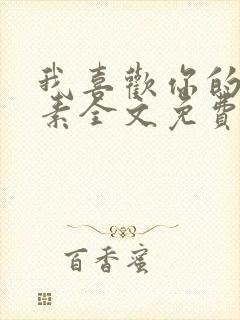 我喜歡你的
素全文免費
百香蜜